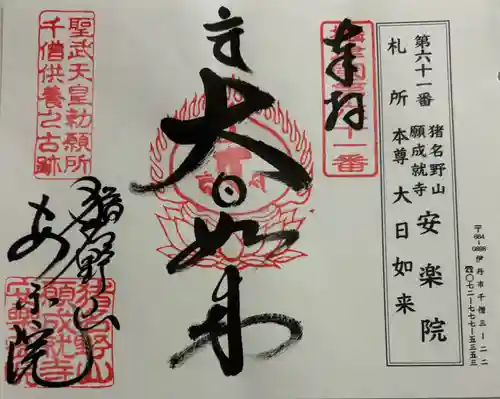 〒664-0898 伊丹市千僧三ー二二
☎〇七二ー七七七ー五三五三
第六十一番
猪名野山
願成就寺
安楽院
札所 本尊 大日如来
奉拝
十一番
大日如来
聖武天皇勅願所
千僧供養之古跡
猪名野山
安楽院
猪名野山
願成就寺